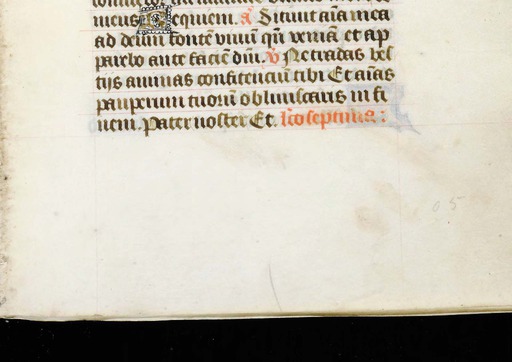 micus Requiem. a Sitivit aīa mea
ad deum fontē vivū qn̄ veniā et ap
parebo ante faciē dn̄i. v Ne tradas bes
tiis animas confitenciū tibi Et aīas
pauperum tuorū obliviscaris in fi
nem. Pater noster Et. lc̄o septima:
05